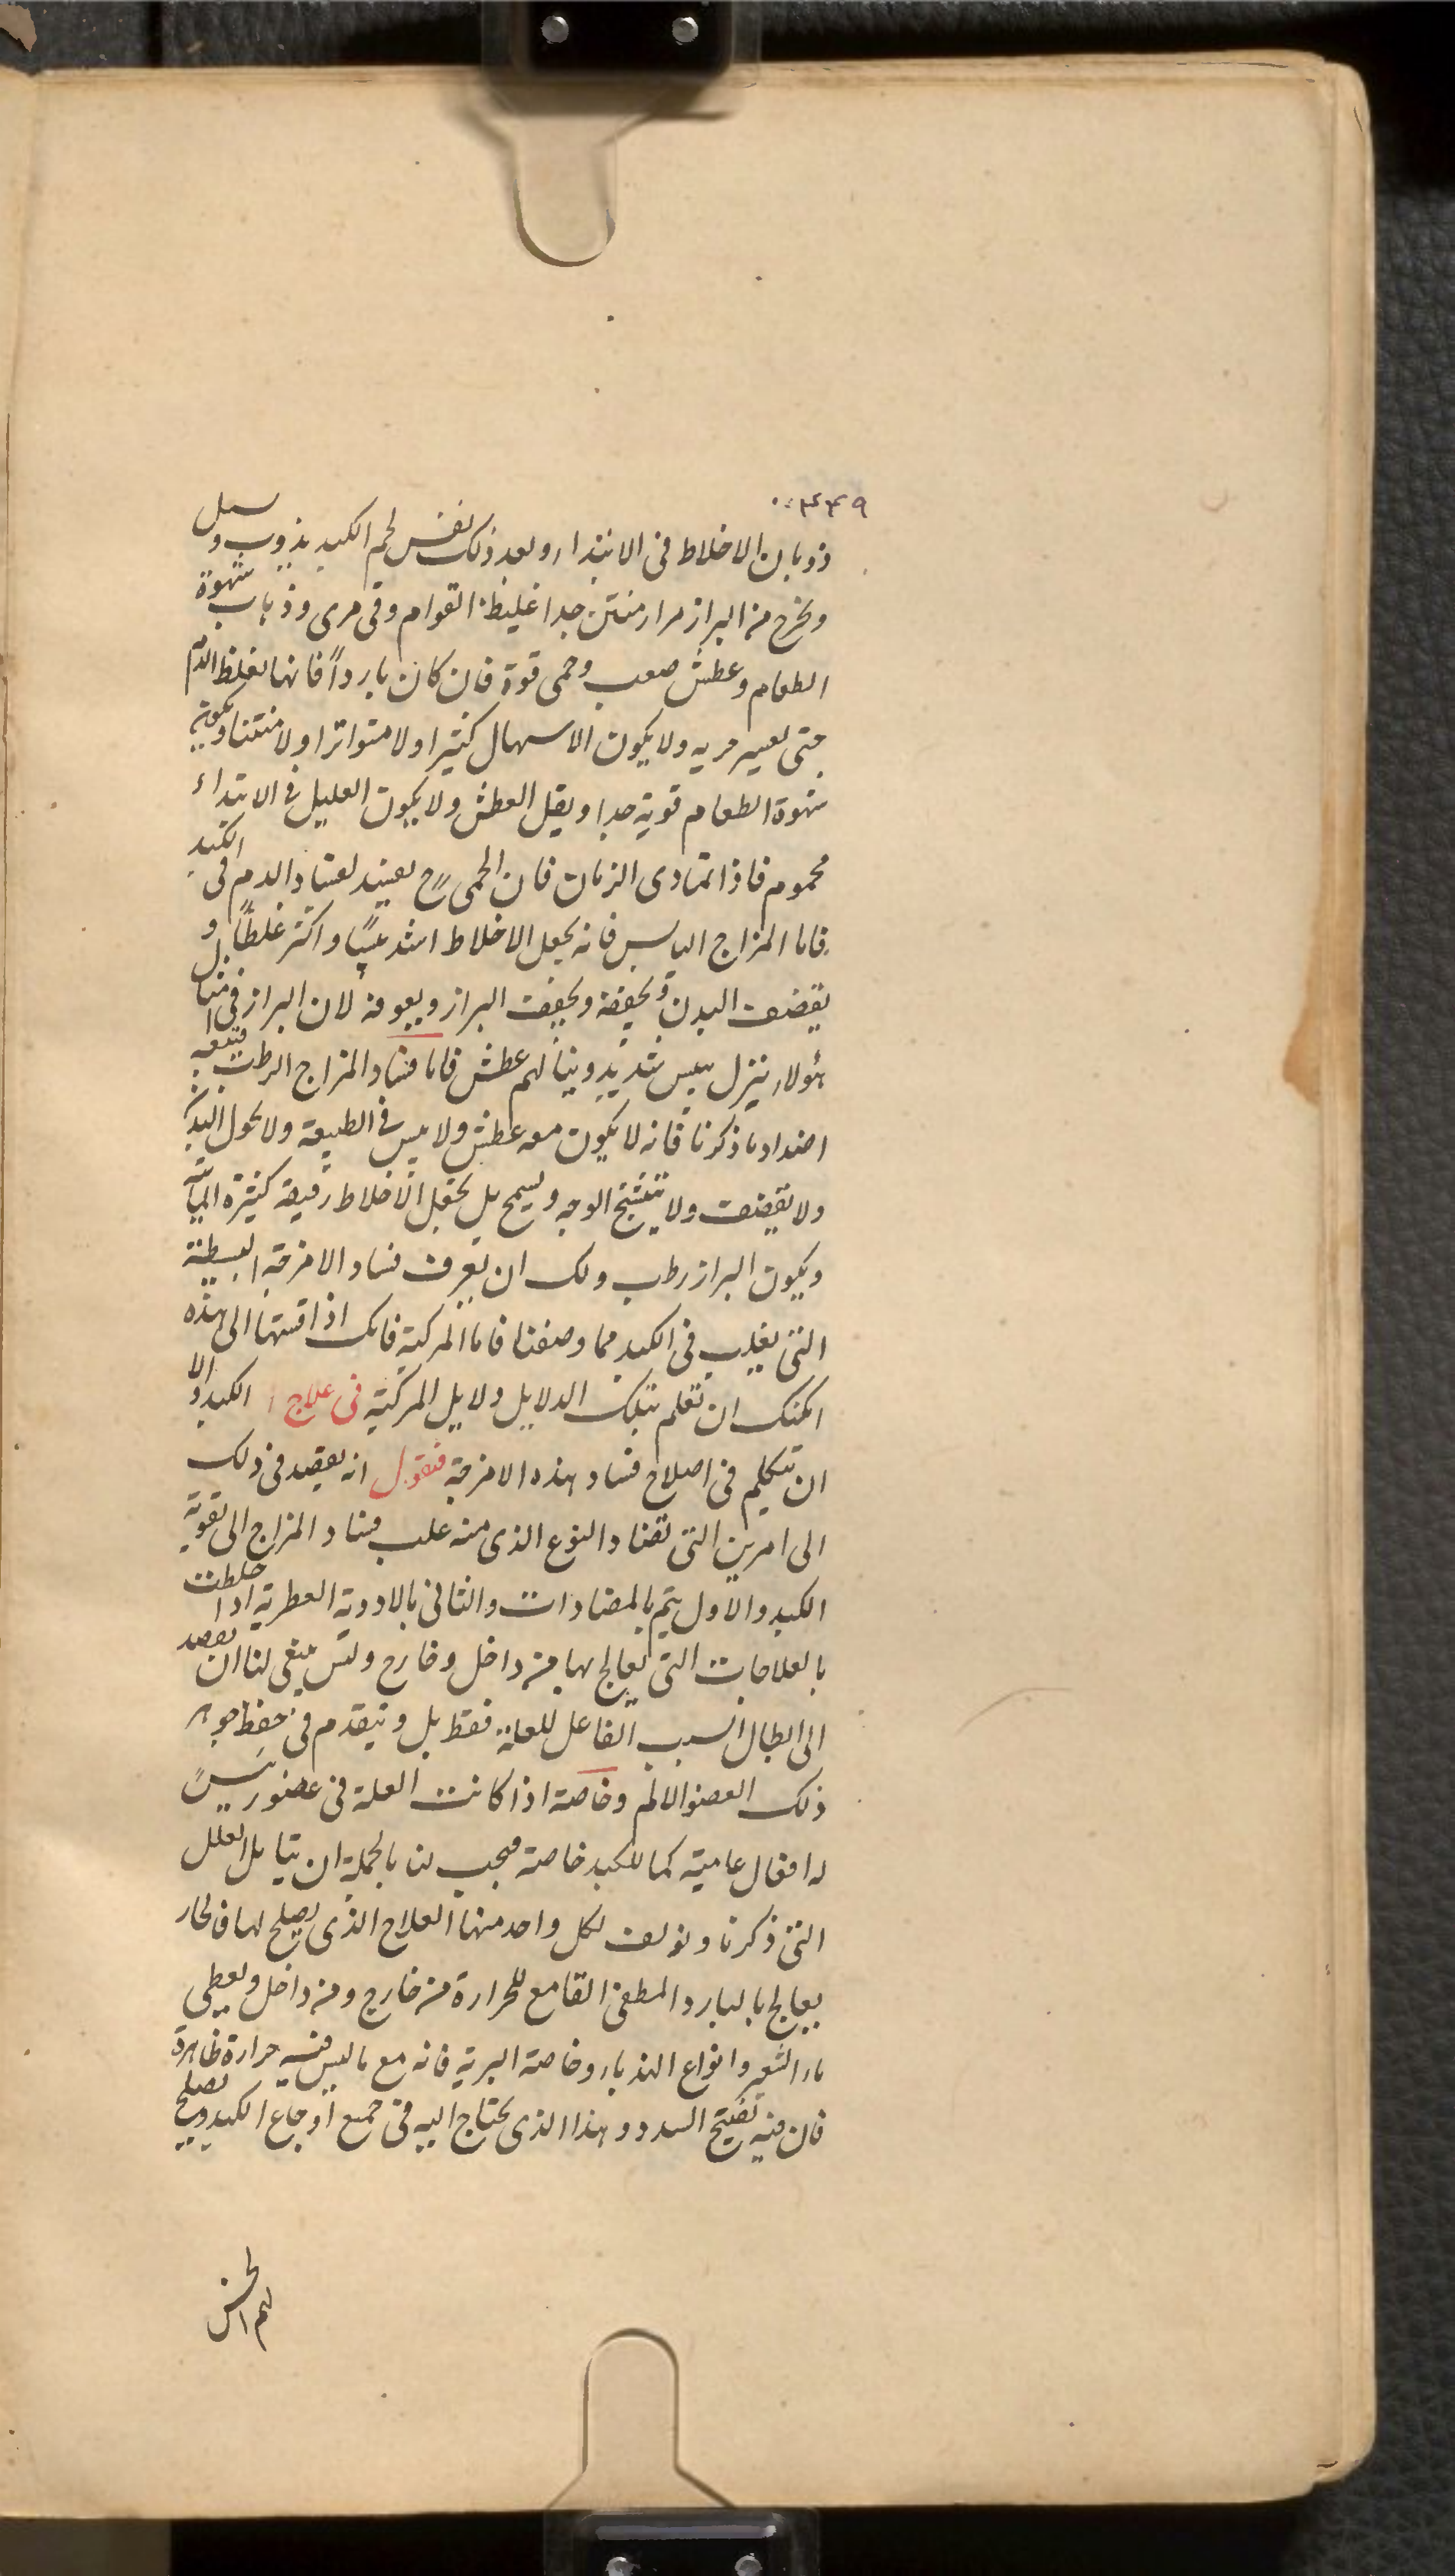 ٤٤٩
ذوبان الاخلاط فى الابتداء وبعد ذلك نفس لحم الكبد يذوب ويسيل
ويخرج من البراز مرار منتن جدا غليظ القوام وقى مرى وذهاب شهوة
الطعام وعطش صعب وحمى قوة فان كان بارداً فانها تغلظ الدم
حتى تعسر جريه ولا يكون الاسهال كثيرا ولا متواترا ولا منتنا ويكون
شهوة الطعام قوية جدا ويقل العطش ولا يكون العليل فى الابتداء
محموم فاذا تمادى الزمان فان الحمى ح لفساد الدم فى الكبد
فاما المزاج اليابس فانه يجعل الاخلاط اشد يبسًا واكثر غلظًا و
يقضف البدن ويجففه ويجفف البراز لان البراز فى
هؤلاء ينزل بيبس شديد وينالهم عطش فاما فساد المزاج الرطب فيتبعه
اضداد ما ذكرنا فانه لا يكون معه عطش ولا يبس فى الطبيعة ولا يحول البدن
ولا يقضف ولا يتشنج الوجه ويسمج بل يجعل الاخلاط رقيقة كثيرة المائية
ويكون البراز رطب ولك ان تعرف فساد الامزجة البسيطة
التى يغلب فى الكبد مما وصفنا فاما المركبة فانك اذا قستها الى هذه
امكنك ان تعلم بتلك الدلايل دلايل المركبة فى علاج الكبد والا
ان نتكلم فى اصلاح فساد هذه الامزجة فنقول انه يقصد فى ذلك
الى امرين التى تضاد النوع الذى منه غلب فساد المزاج الى تقوية
الكبد والاول يتم بالمضادات والثانى بالادوية العطرية اذا خلطت
بالعلاجات التى يعالج بها من داخل وخارج وليس ينبغى لنا ان نقصد
الى ابطال السبب الفاعل للعلة فقط بل ونتقدم فى حفظ جوهر
ذلك العضو الالم وخاصة اذا كانت العلة فى عضو رييسً
له افعال عامية كما للكبد خاصة فيجب لنا بالجملة ان نقابل العلل
التى ذكرنا ونولف لكل واحد منها العلاج الذى يصلح لها فالحار
يعالج بالبارد المطفى القامع للحرارة من خارج ومن داخل ويعطى
ماء الشعير وانواع الهندباء وخاصة البرية فانه مع ما ليس فيه حرارة ظاهرة
فان فيه تفتيح السدد وهذا الذى يحتاج اليه فى جميع اوجاع الكبد ويصلح
لهم الخس